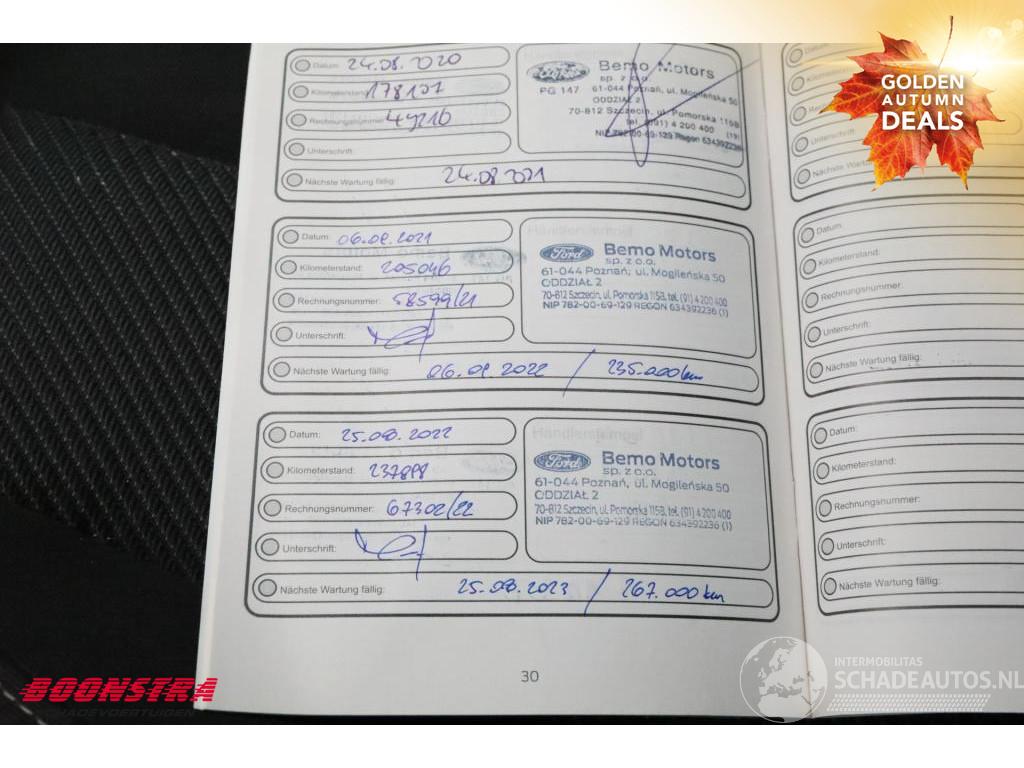 GOLDEN
AUTUMN
DEALS
Datum: 24.08.2020
Kilometerstand:
Rechnungsnummer:
Unterschrift:
Nächste Wartung fällig: 24.08 2021
Ford
Bemo Motors
sp. z o.o.
PG 147 61-044 Poznań, ul. Mogileńska 50
ODDZIAŁ 2
70-812 Szczecin, ul. Pomorska 115B
tel. (91) 4 200 400 (19)
NIP 782-00-69-129 Regon 634392236
Datum: 06.09.2021
Kilometerstand: 205046
Rechnungsnummer: 58599/21
Unterschrift:
Nächste Wartung fällig: 06.09.2022 / 235.000km
Händlerstempel
Ford
Bemo Motors
sp. z o.o.
61-044 Poznań, ul. Mogileńska 50
ODDZIAŁ 2
70-812 Szczecin, ul. Pomorska 115B, tel. (91) 4 200 400
NIP 782-00-69-129 REGON 634392236 (1)
Datum: 25.08.2022
Kilometerstand: 237898
Rechnungsnummer: 67302/22
Unterschrift:
Nächste Wartung fällig: 25.08.2023 / 267.000km
Händlerstempel
Ford
Bemo Motors
sp. z o.o.
61-044 Poznań, ul. Mogileńska 50
ODDZIAŁ 2
70-812 Szczecin, ul. Pomorska 115B, tel. (91) 4 200 400
NIP 782-00-69-129 REGON 634392236 (1)
30
Unterschrift:
Nächste Wartung
Datum:
Kilometerstand:
Rechnungsnummer:
Unterschrift:
Nächste Wartung fällig:
Datum:
Kilometerstand:
Rechnungsnummer:
Unterschrift:
Nächste Wartung fällig:
BOONSTRA
SCHADEVOERTUIGEN
INTERMOBILITAS
SCHADEAUTOS.NL